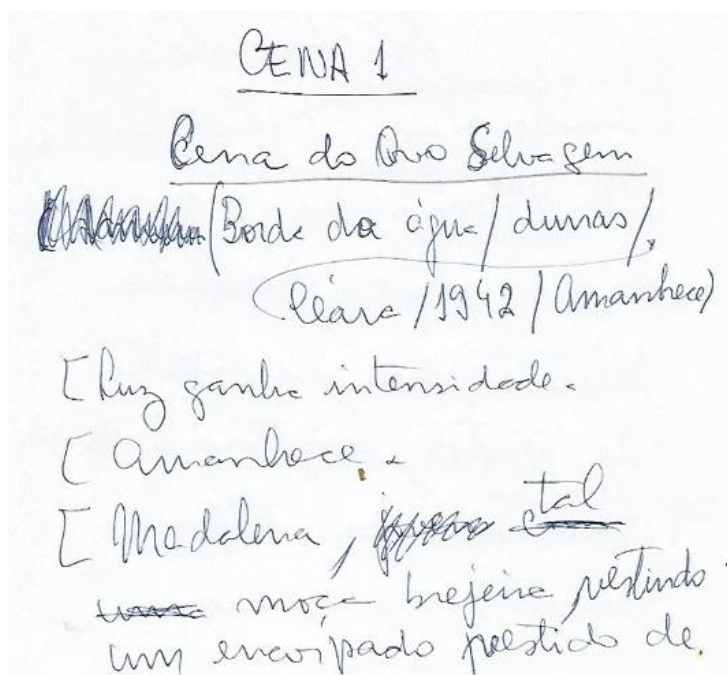 CENA 1
Cena do Ovo Selvagem
(Borda da água / dunas /
Ceara / 1942 / Amanhece)
[ Luz ganha intensidade.
[ Amanhece.
[ Madalena, tal
uma moça brejeira, vestindo
um encorpado vestido de